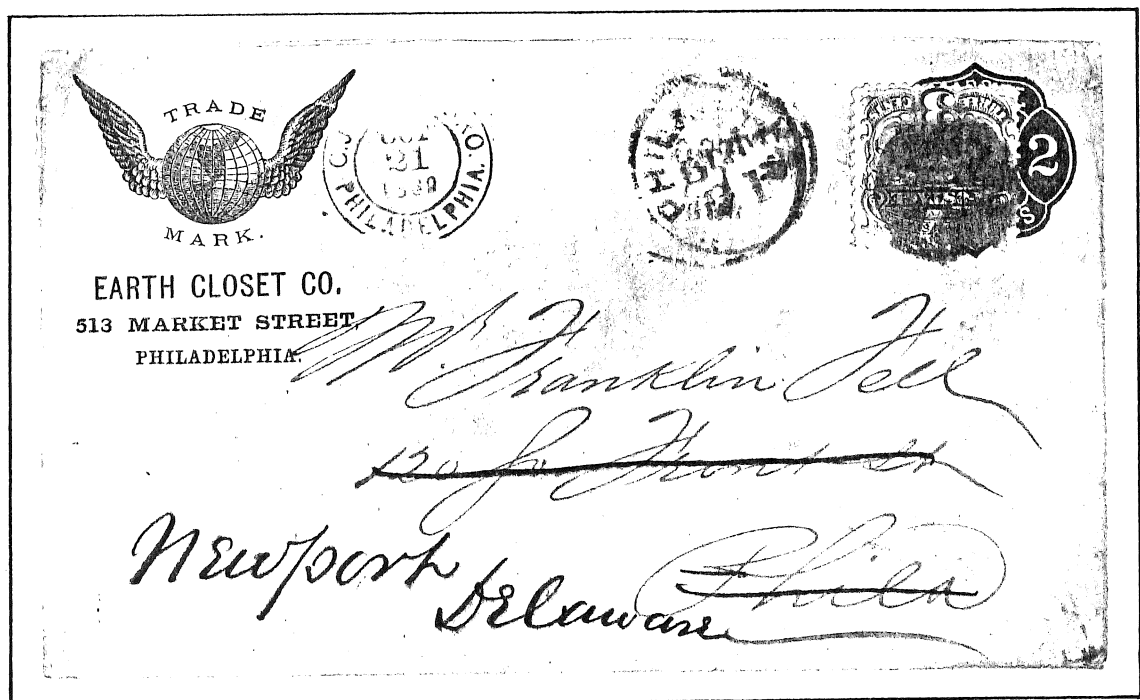 TRADE
MARK.
EARTH CLOSET CO.
513 MARKET STREET,
PHILADELPHIA.
OCT
21
PHILADELPHIA. O
PHIL
2
Mr. Franklin Fell
120 So Front St
Phila
Newport
Delaware